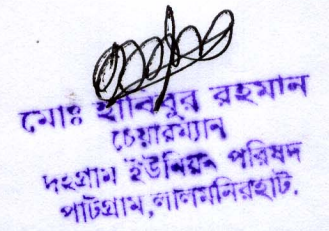 মোঃ হাবিবুর রহমান
চেয়ারম্যান
দহগ্রাম ইউনিয়ন পরিষদ
পাটগ্রাম,লালমনিরহাট.